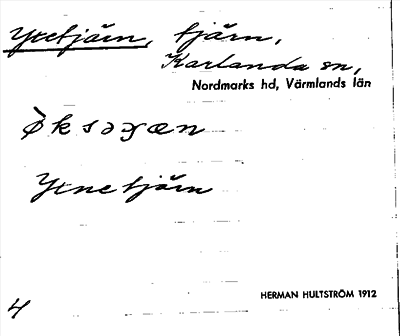 Yxetjärn, tjärn,
Karlanda sn,
Nordmarks hd, Värmlands län
Yxnetjärn
HERMAN HULTSTRÖM 1912
4